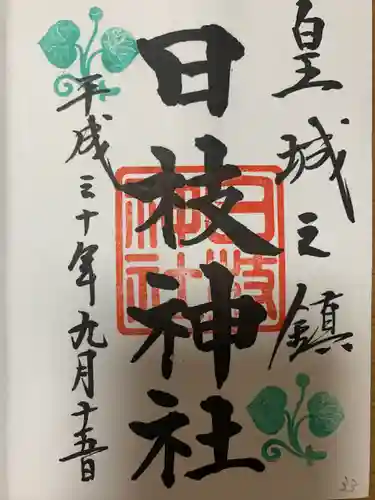 皇城之鎮
日枝神社
平成三十年九月十五日
日枝
神社